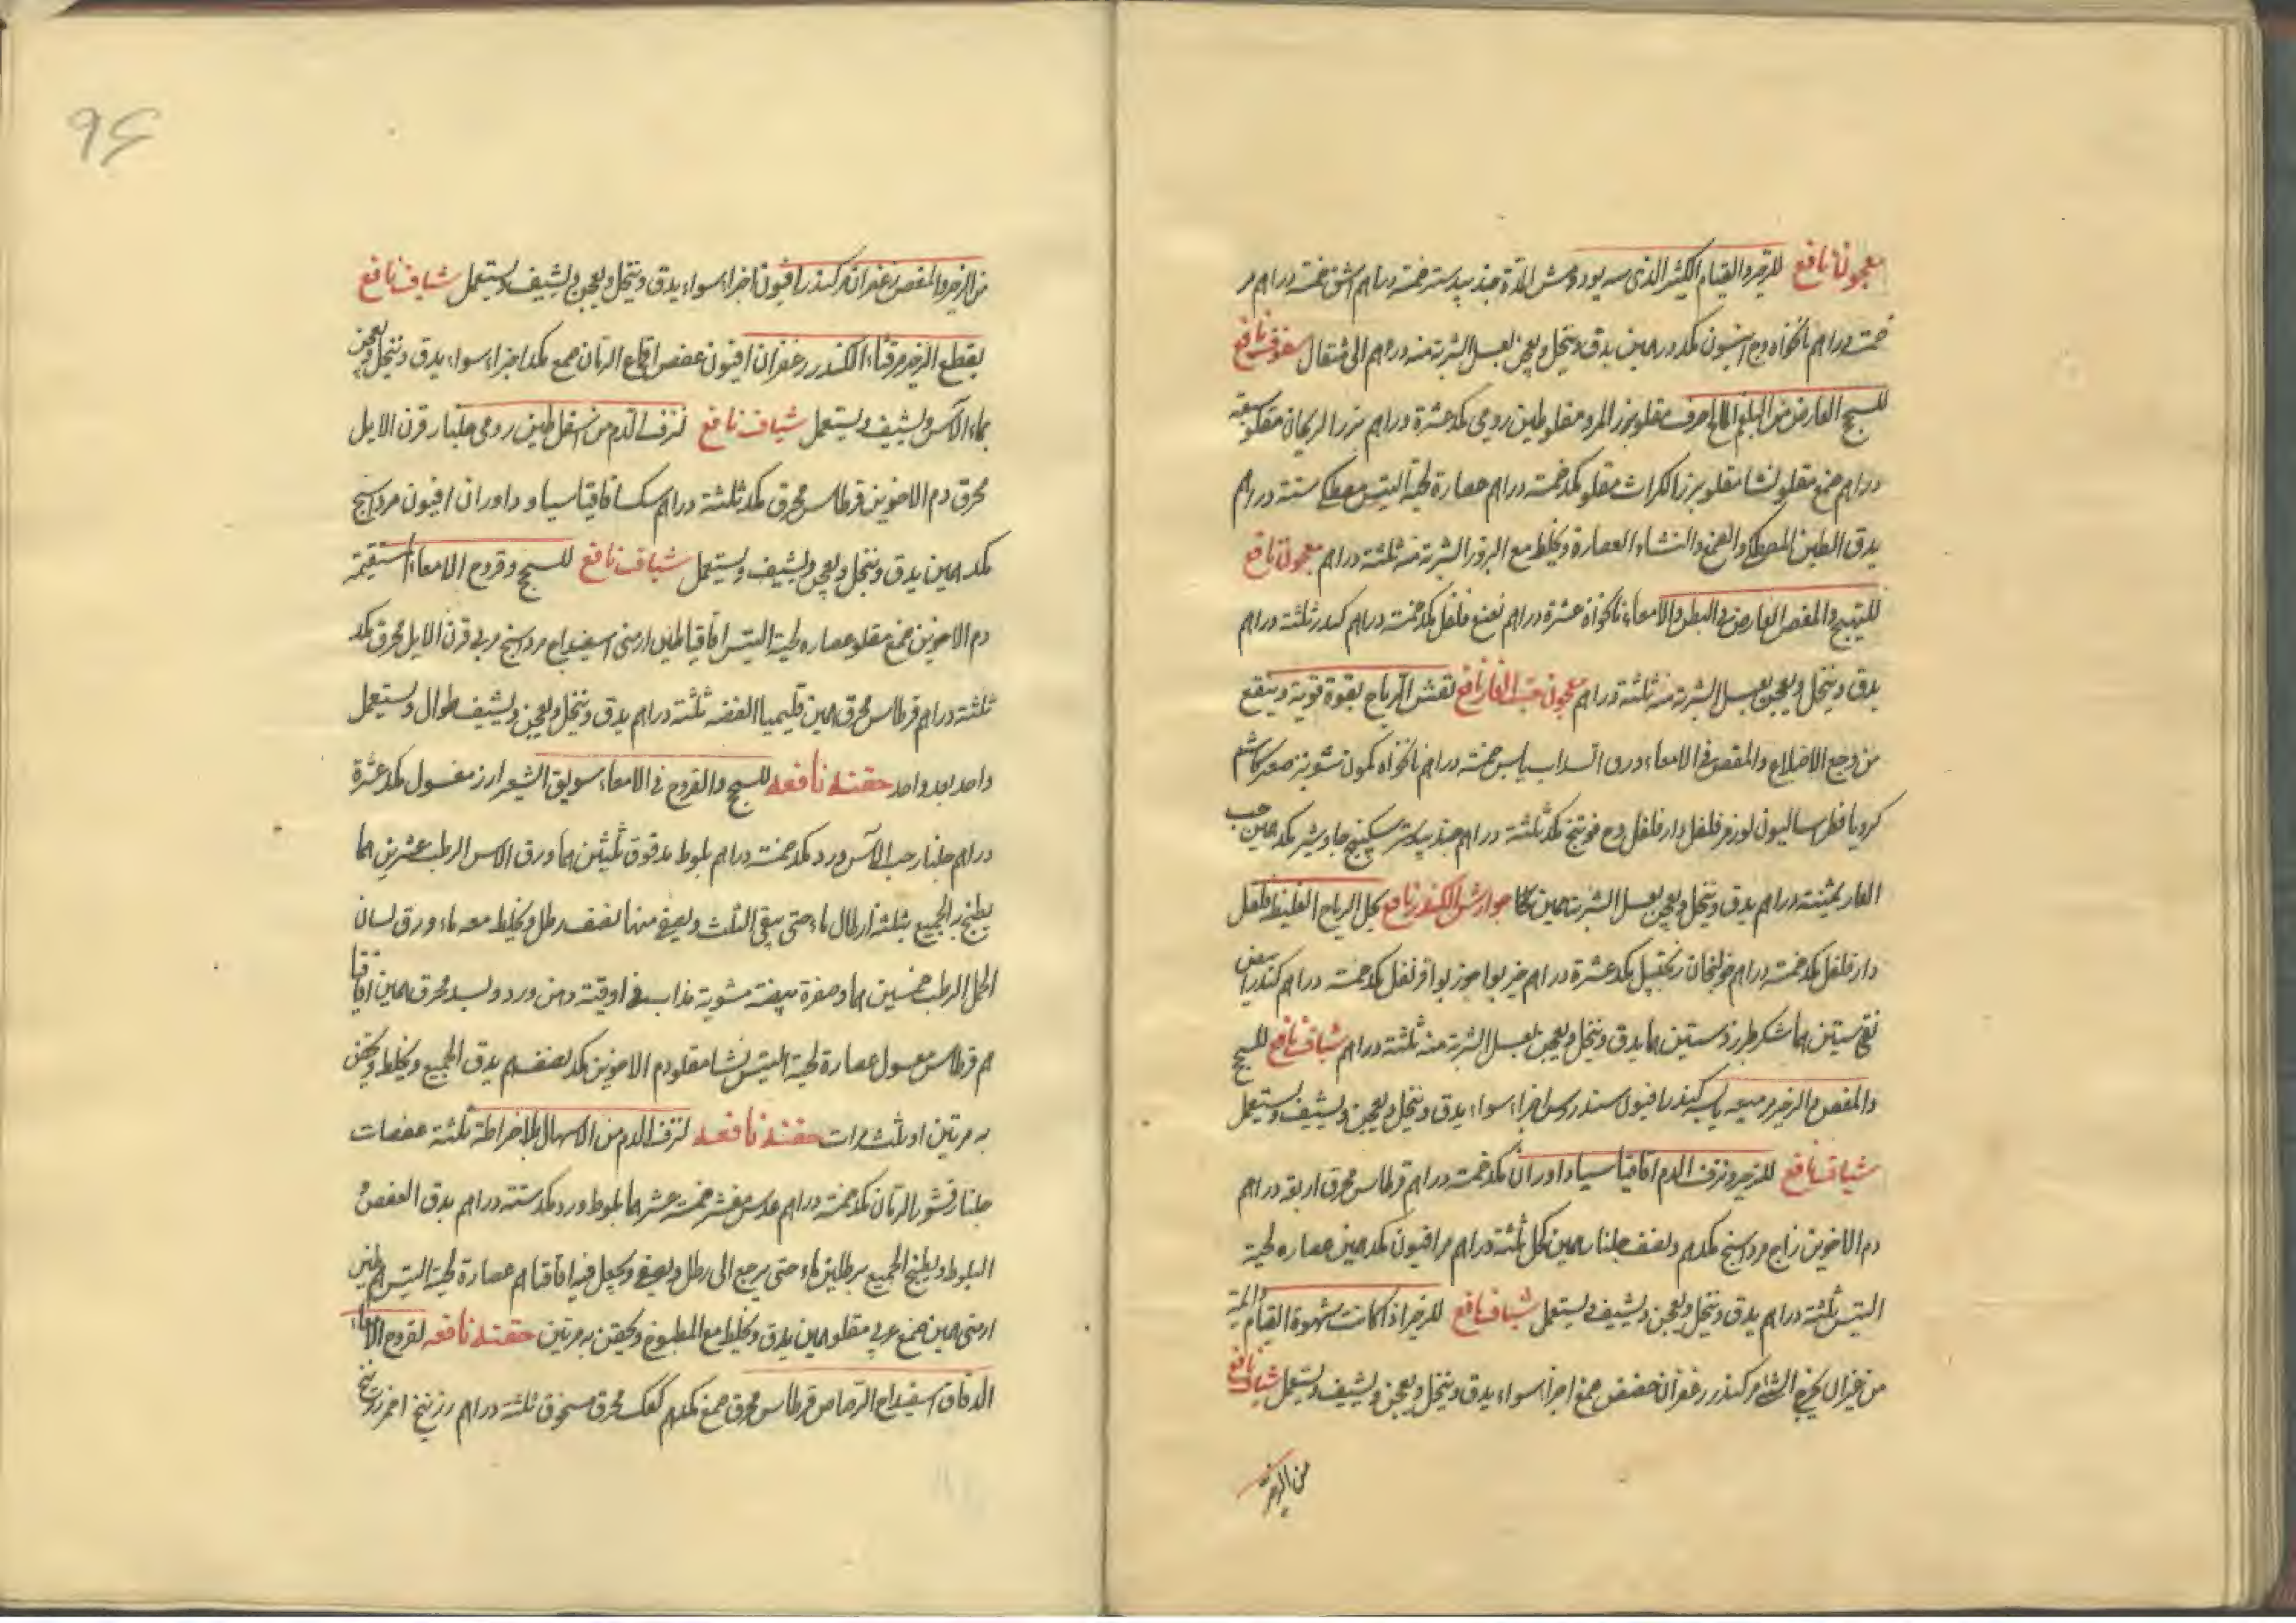 معجون نافع للزحير والقيام الكثير الذى سه يود ومش الدة جندبيدستر خمسة دراهم اشق خمسة دراهم مر
خمسة دراهم نانخواه وج انيسون مكد درهمين يدق وينخل ويعجن بعسل الشربة منه درهم الى مثقال سفوف نافع
للسحج العارض من البلغم المالح حرف مقلو بزر المرو مقلو طين رومى مكد عشرة دراهم بزر الريحان مقلو سبعة
دراهم صمغ مقلو نشا مقلو بزر الكراث مقلو مكد خمسة دراهم عصارة لحية التيس مصطكى ستة دراهم
يدق الطين والمصطكى والصمغ والنشاء والعصارة ويخلط مع البزور الشربة منه ثلثة دراهم معجون نافع
للتهبج والمغص العارض فى البطن والامعاء نانخواة عشرة دراهم نعنع فلفل مكد خمسة دراهم كندر ثلثة دراهم
يدق وينخل ويعجن بعسل الشربة منه ثلثة دراهم معجون حب الغار نافع لفش الرياح بقوة قوية وينفع
من وجع الاضلاع والمغص فى الامعاء ورق السداب يابس خمسة دراهم نانخواه كمون شونيز صعتر كاشم
كرويا فطرساليون لوز مر فلفل دار فلفل وج فوتنج مكد ثلثة دراهم جندبيدستر سكبينج جاوشير مكد همين حب
الغار ثمنية دراهم يدق وينخل ويعجن بعسل الشربة همين بكا جوارش الكندر نافع لحل الرياح الغليظة فلفل
دار فلفل مكد خمسة دراهم خولنجان زنجبيل مكد عشرة دراهم خير بوا جوز بوا قرنفل مكد خمسة دراهم كندر ابيض
نقى ستين هما شكر طبرزد ستين هما يدق وينخل ويعجن بعسل الشربة منه ثلثة دراهم شياف نافع للسحج
والمغص والزحير مر ميعه يابسه كندر افيون سندروس اجزاء سواء يدق وينخل ويعجن ويشيف ويستعمل
شياف نافع للزحير ونزف الدم اقاقيا سياداوران مكد خمسة دراهم قرطاس محرق اربعة دراهم
دم الاخوين زاج مرداسنج مكدهم ونصف جلنار همين كحل ثلثة دراهم مر افيون مكد همين عصاره لحية
التيس ثلثة دراهم يدق وينخل ويعجن ويشيف ويستعمل شياف نافع للزحير اذا كانت شهوة القيام دائمة
من غير ان يخرج الشئ مر كندر زعفران حضض صمغ اجزا سواء يدق وينخل ويعجن ويشيف ويستعمل شياف نافع
من الزحير
٩٤
من الزحير والمغص زعفران مر كندر افيون اجزاء سواء يدق وينخل ويعجن ويشيف ويستعمل شياف نافع
يقطع الزحير مر قشاء الكندر زعفران افيون عفص اقماع الرمان صمغ مكد اجزاء سواء يدق وينخل ويعجن
بماء الآس ويشيف ويستعمل شياف نافع لنزف الدم من اسفل طين رومى جلنار قرن الايل
محرق دم الاخوين قرطاس محرق مكد ثلثة دراهم سك اقاقيا سياوداوران افيون مرداسنج
مكد همين يدق وينخل ويعجن ويشيف ويستعمل شياف نافع للسحج وقروح الامعاء المستقيمة
دم الاخوين صمغ مقلو عصاره لحية التيس اقاقيا طين ارمنى اسفيداج مرداسنج مربى قرن الايل محرق مكد
ثلثة دراهم قرطاس محرق همين قليميا الفضه ثلثة دراهم يدق وينخل ويعجن ويشيف طوال ويستعمل
واحد بعد واحد حقنه نافعه للسحج والقروح فى الامعاء سويق الشعير ارز مغسول مكد عشرة
دراهم جلنار حب الآس ورد مكد خمسة دراهم بلوط مدقوق ثلثين هما ورق الاس الرطب عشرين هما
يطبخ الجميع بثلثة ارطال ماء حتى يبقى الثلث ويصفى منها نصف رطل ويخلط معه ماء ورق لسان
الحمل الرطب خمسين هما وصفرة بيضة مشوية مذاب فى اوقية دهن ورد وبسد محرق همين اقاقيا
هم قرطاس مغسول عصارة لحية التيس نشا مقلو دم الاخوين مكد نصف هم يدق الجميع ويخلط ويحقن
به مرتين او ثلث مرات حقنه نافعه لنزف الدم من الاسهال بالافراطة ثلثة عفصات
جلنار قشور الرمان مكد خمسة دراهم عدس مقشر خمسة عشر هما بلوط ورد مكد ستة دراهم يدق العفص و
البلوط ويطبخ الجميع برطلين ماء حتى يرجع الى رطل ويصفى ويجعل فيه اقاقيا هم عصارة لحية التيس هم طين
ارمنى همين صمغ عربى مقلو همين يدق ويخلط مع المطبوخ ويحقن به مرتين حقنه نافعه لقروح الامعاء
الدقاق اسفيداج الرصاص قرطاس محرق صمغ مكدهم كعك محرق مسحوق ثلثة دراهم زرنيخ احمر زرنيخ